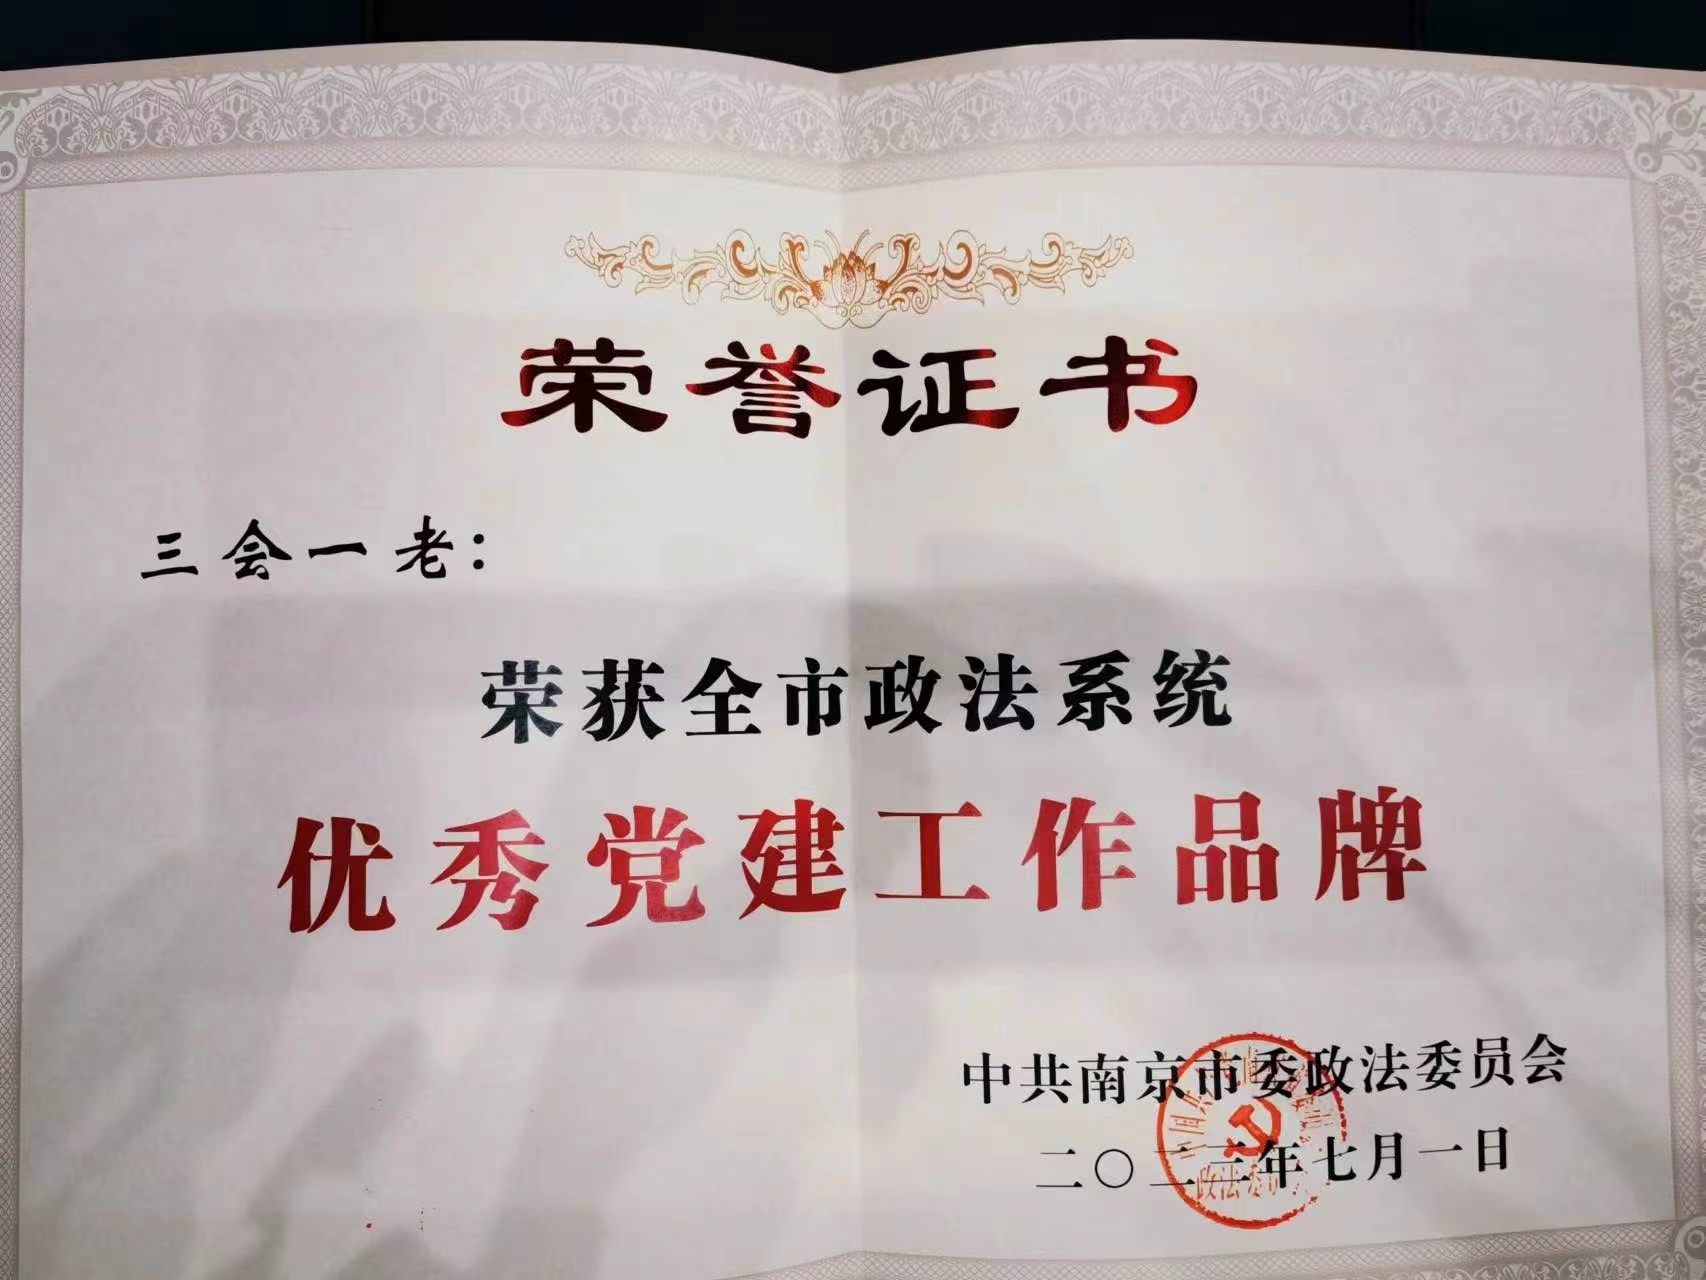 荣誉证书
三会一老：
荣获全市政法系统
优秀党建工作品牌
中共南京市委政法委员会
二〇二三年七月一日